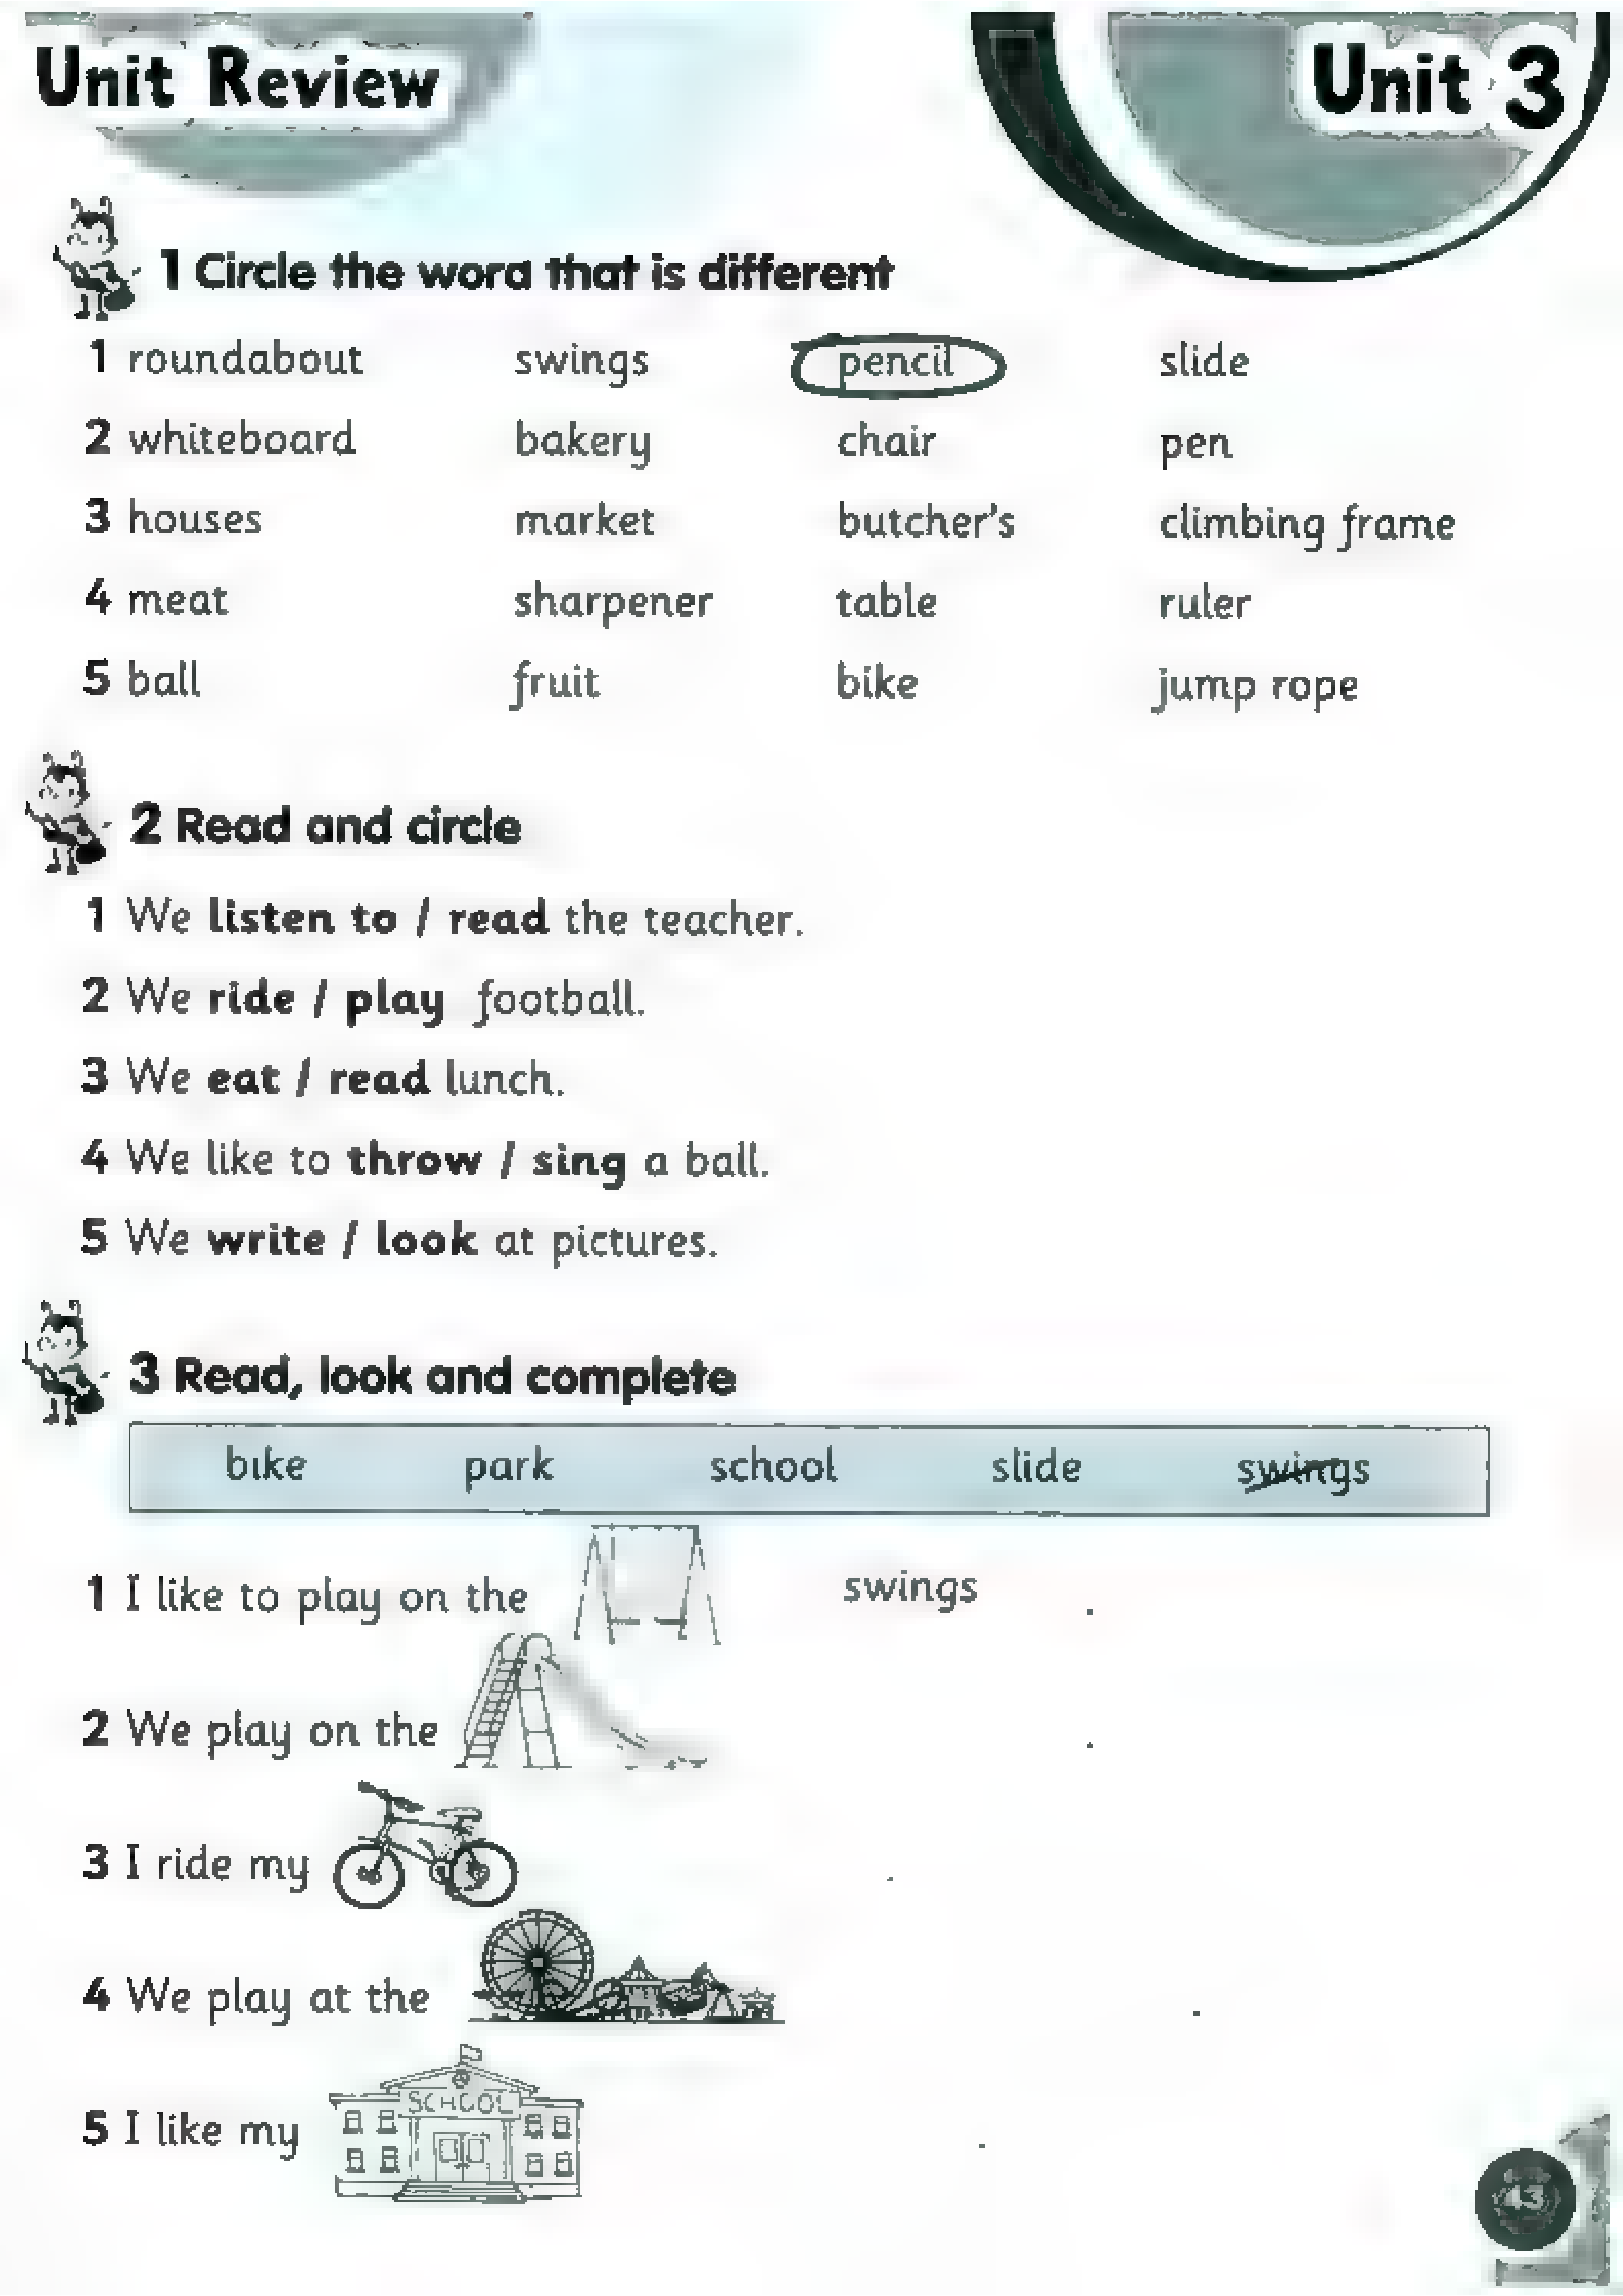 Unit Review
Unit 3
1 Circle the word that is different
1 roundabout swings pencil slide
2 whiteboard bakery chair pen
3 houses market butcher's climbing frame
4 meat sharpener table ruler
5 ball fruit bike jump rope
2 Read and circle
1 We listen to / read the teacher.
2 We ride / play football.
3 We eat / read lunch.
4 We like to throw / sing a ball.
5 We write / look at pictures.
3 Read, look and complete
bike park school slide swings
1 I like to play on the swings .
2 We play on the .
3 I ride my .
4 We play at the .
SCHOOL
5 I like my .
43